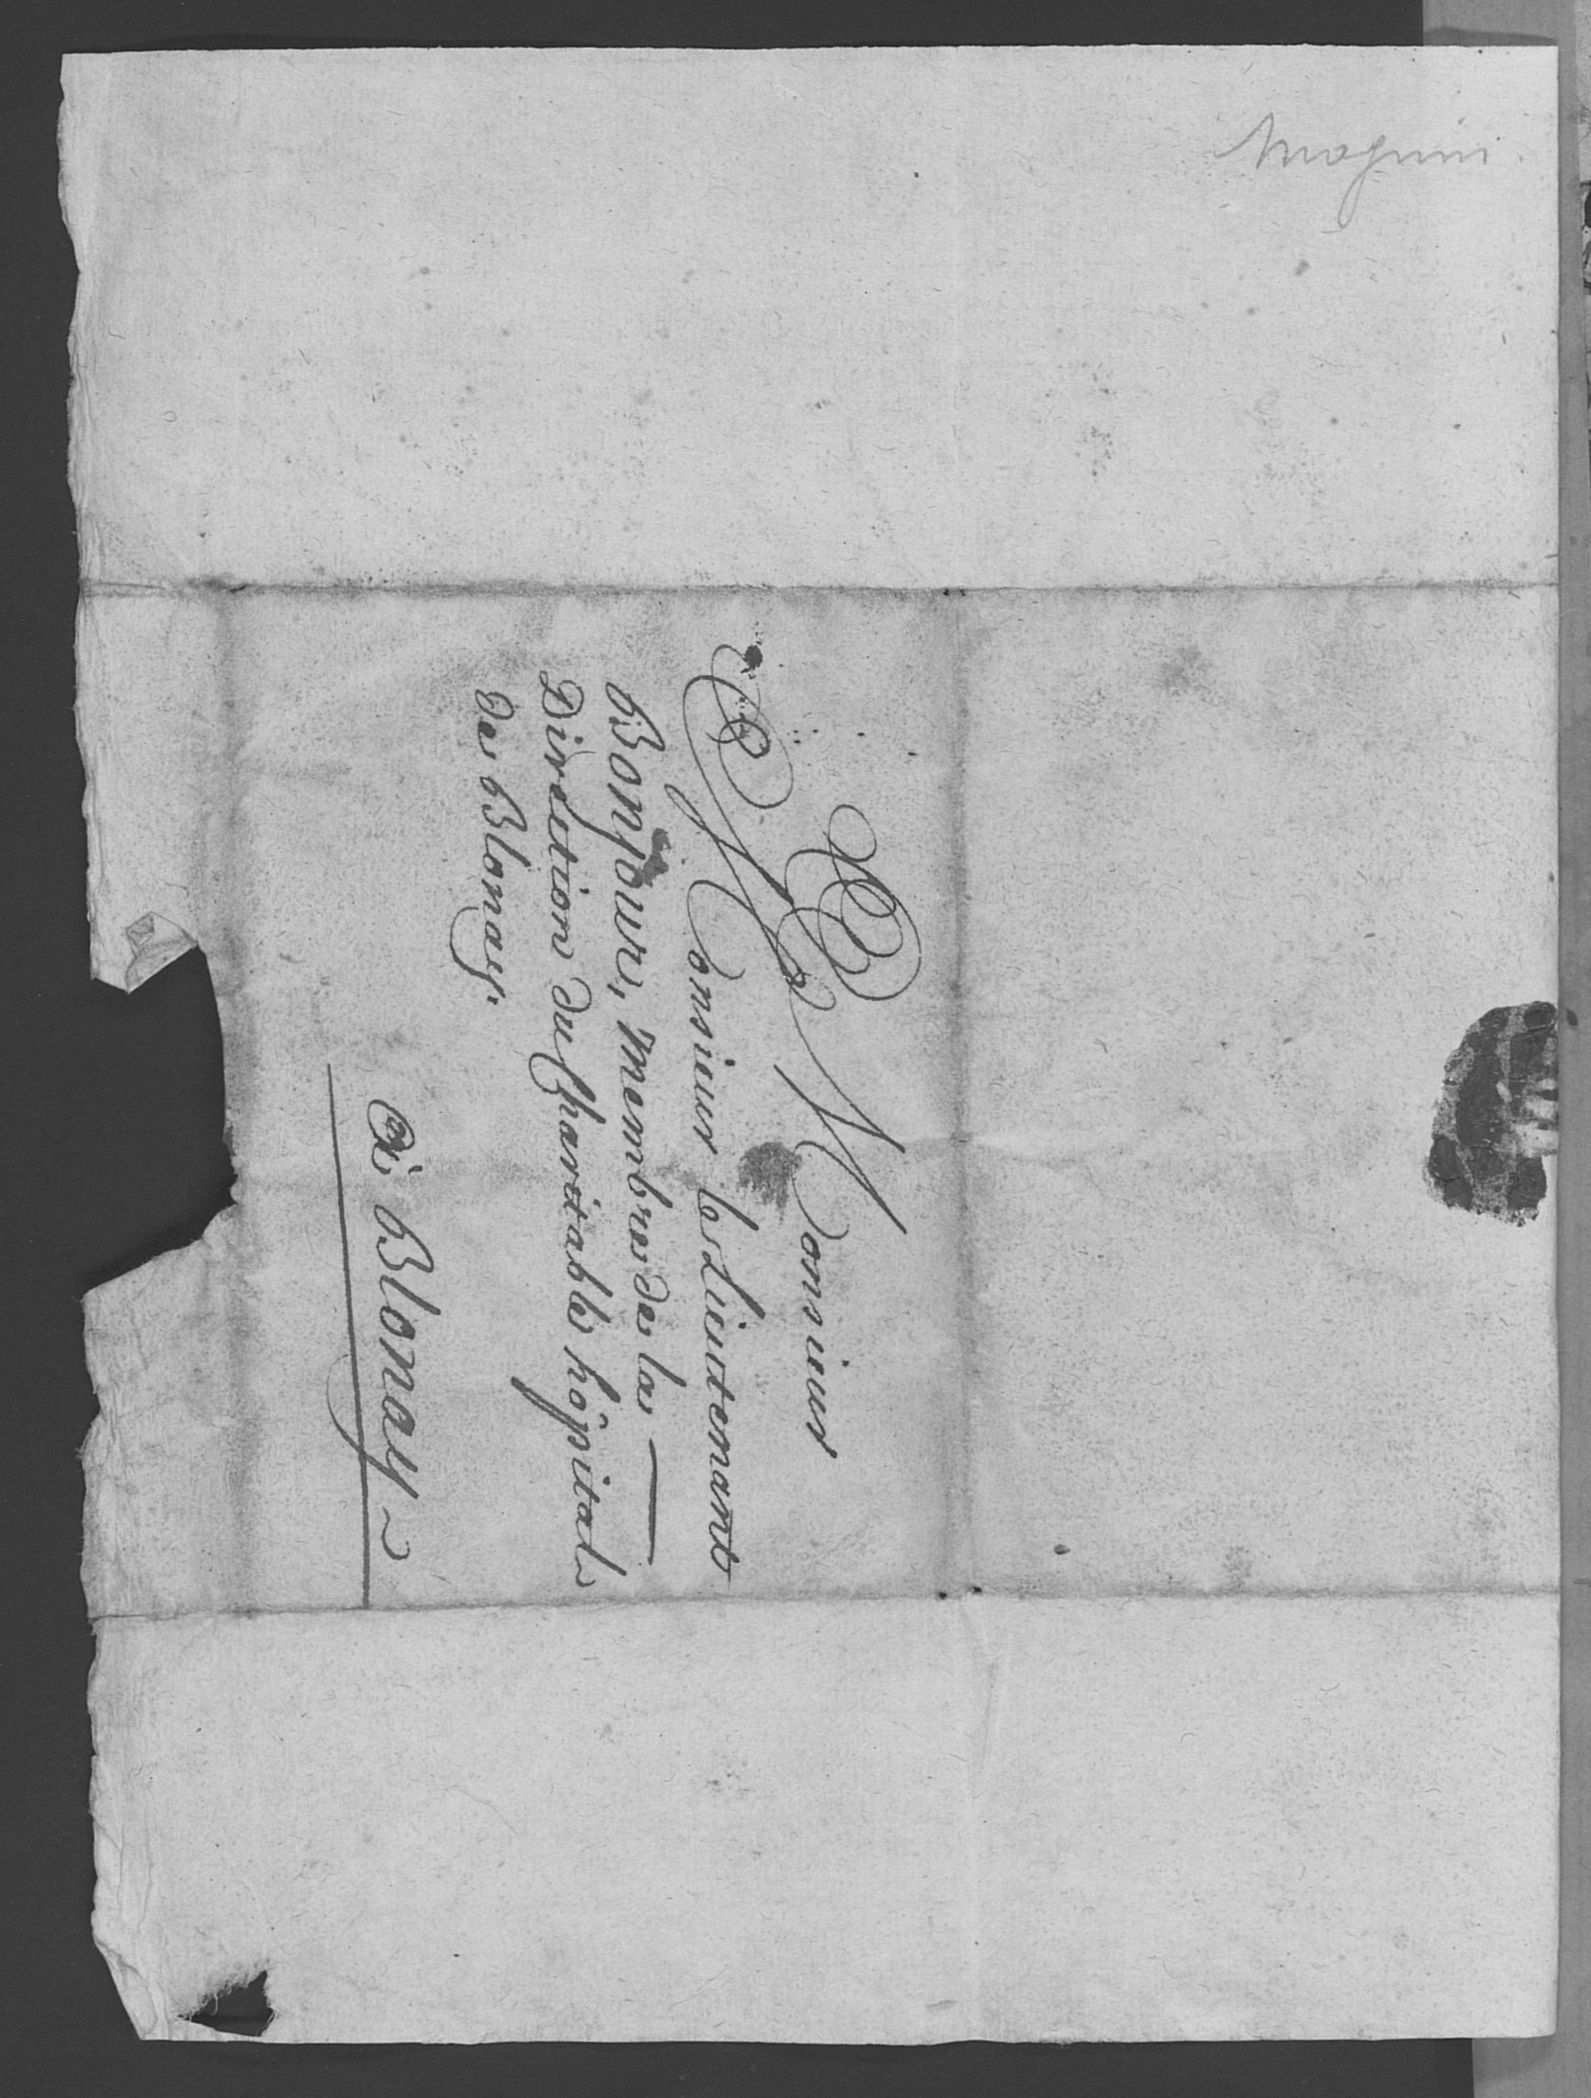 Monsieur
Monsieur le Lieutenant
Bonjour, membre de la
Direction du Charitable hôpital
de Blonay.
à Blonay